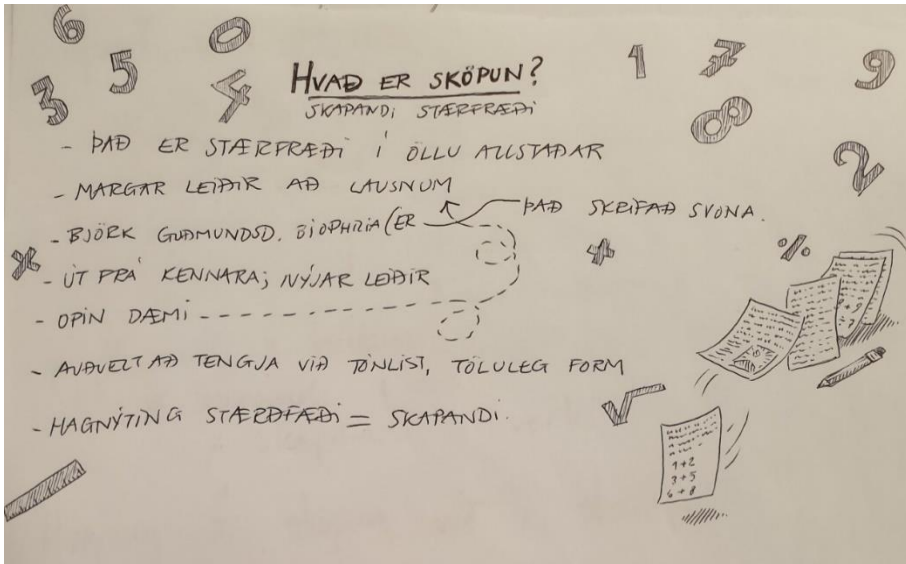 6 0 1 7 9
3 5 4 8 2
HVAÐ ER SKÖPUN?
SKAPANDI STÆRFRÆÐI
- ÞAÐ ER STÆRFRÆÐI Í ÖLLU ALLSTAÐAR
- MARGAR LEIÐIR AÐ LAUSNUM
- BJÖRK GUÐMUNDSD. BIOPHILIA (ER ÞAÐ SKRIFAÐ SVONA.
- ÚT FRÁ KENNARA; NÝJAR LEIÐIR
- OPIN DÆMI
- AUÐVELT AÐ TENGJA VIÐ TÓNLIST, TÖLULEG FORM
- HAGNÝTING STÆRÐFÆÐI = SKAPANDI.
× + %
√
8 + 9
1+2
3+5
6+8